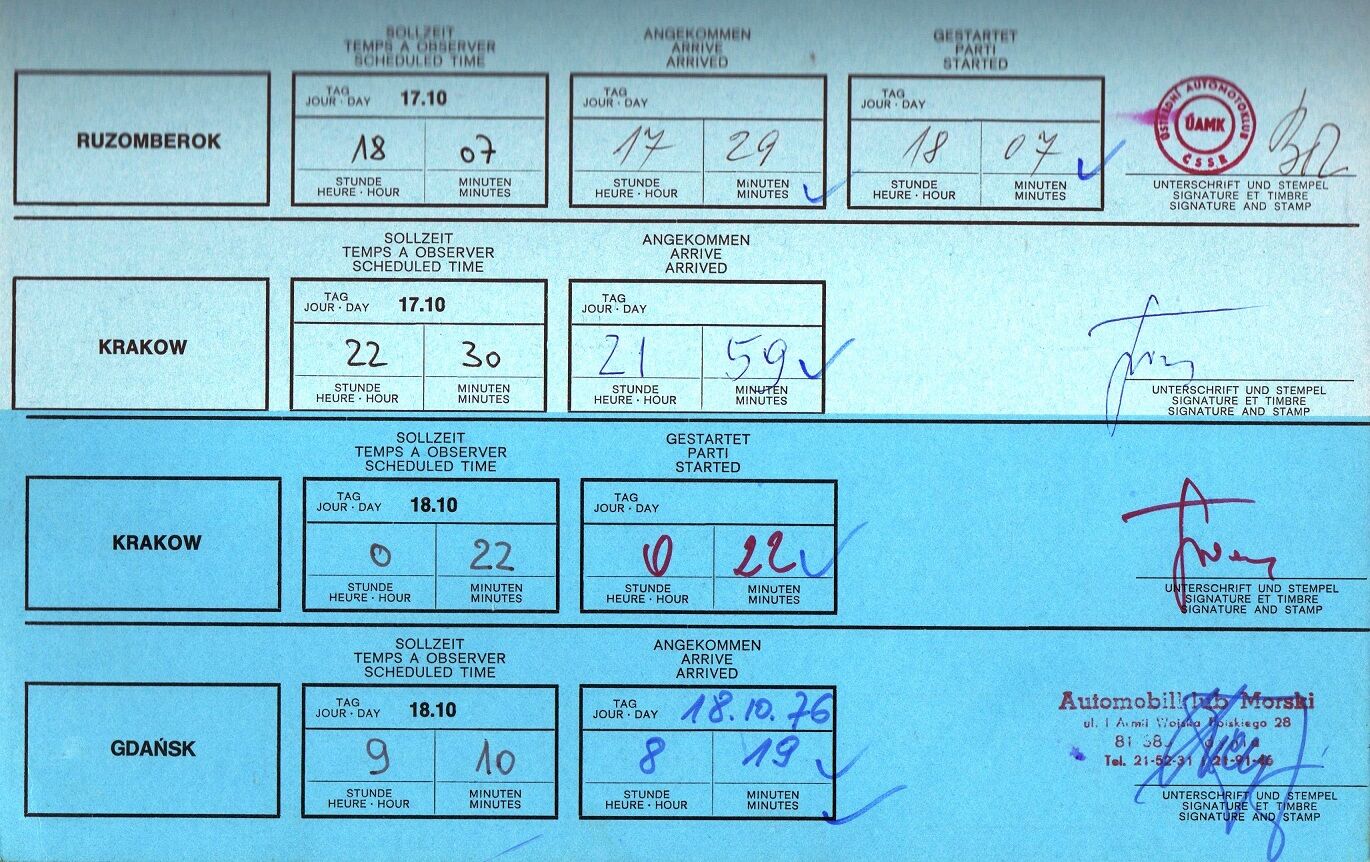 SOLLZEIT
TEMPS A OBSERVER
SCHEDULED TIME
ANGEKOMMEN
ARRIVE
ARRIVED
GESTARTET
PARTI
STARTED
RUZOMBEROK
TAG
JOUR · DAY 17.10
18 07
STUNDE
HEURE · HOUR
MINUTEN
MINUTES
TAG
JOUR · DAY
17 29
STUNDE
HEURE · HOUR
MINUTEN
MINUTES
TAG
JOUR · DAY
18 07
STUNDE
HEURE · HOUR
MINUTEN
MINUTES
ÚSTŘEDNÍ AUTOMOTOKLUB
ÚAMK
ČSSR
UNTERSCHRIFT UND STEMPEL
SIGNATURE ET TIMBRE
SIGNATURE AND STAMP
SOLLZEIT
TEMPS A OBSERVER
SCHEDULED TIME
ANGEKOMMEN
ARRIVE
ARRIVED
KRAKOW
TAG
JOUR · DAY 17.10
22 30
STUNDE
HEURE · HOUR
MINUTEN
MINUTES
TAG
JOUR · DAY
21 59
STUNDE
HEURE · HOUR
MINUTEN
MINUTES
UNTERSCHRIFT UND STEMPEL
SIGNATURE ET TIMBRE
SIGNATURE AND STAMP
SOLLZEIT
TEMPS A OBSERVER
SCHEDULED TIME
GESTARTET
PARTI
STARTED
KRAKOW
TAG
JOUR · DAY 18.10
0 22
STUNDE
HEURE · HOUR
MINUTEN
MINUTES
TAG
JOUR · DAY
0 22
STUNDE
HEURE · HOUR
MINUTEN
MINUTES
UNTERSCHRIFT UND STEMPEL
SIGNATURE ET TIMBRE
SIGNATURE AND STAMP
SOLLZEIT
TEMPS A OBSERVER
SCHEDULED TIME
ANGEKOMMEN
ARRIVE
ARRIVED
GDAŃSK
TAG
JOUR · DAY 18.10
9 10
STUNDE
HEURE · HOUR
MINUTEN
MINUTES
TAG
JOUR · DAY 18.10.76
8 19
STUNDE
HEURE · HOUR
MINUTEN
MINUTES
Automobilklub Morski
ul. I Armii Wojska Polskiego 28
81
Tel. 21-52-31 21-91-46
UNTERSCHRIFT UND STEMPEL
SIGNATURE ET TIMBRE
SIGNATURE AND STAMP